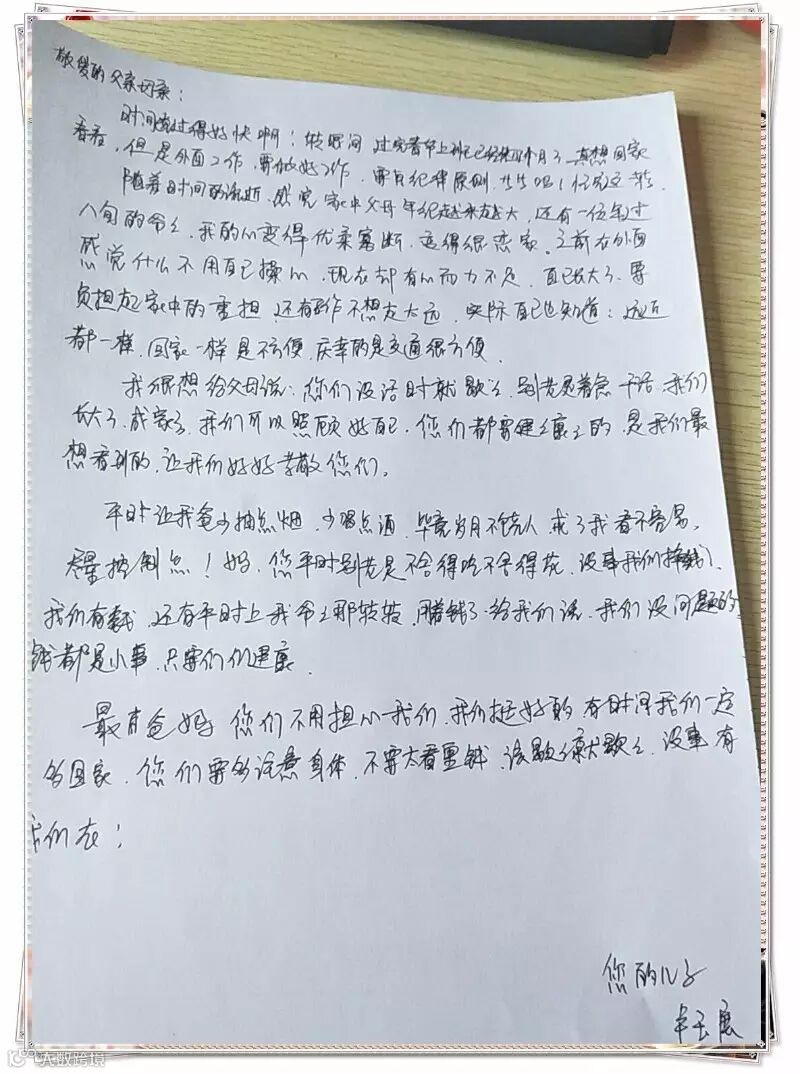 敬爱的父亲母亲：
时间过得好快啊！转眼间 过完春节上班已经快四个月了 真想回家
看看，但是外面工作，要做好工作，要有纪律原则
随着时间的流逝，感觉家中父母年纪越来越大，还有一位年过
八旬的爷爷，我的心变得优柔寡断，变得很恋家。之前在外面
感觉什么不用自己操心，现在却有心而力不足，自己长大了，要
负担起家中的重担，还有工作不想友太远，实际自己也知道：远近
都一样，回家一样是不方便，庆幸的是交通很方便。
我很想给父母说：您们没活时就歇歇，别老是着急干活，我们
长大了，成家了，我们可以照顾好自己，您们都要健健康康的，是我们最
想看到的，让我们好好孝敬您们。
平时让我爸少抽点烟，少喝点酒，毕竟岁月不饶人，戒了我看不容易，
尽量控制点！妈，您平时别老是不舍得吃不舍得花，没事我们挣钱了，
我们有钱，还有平时上我爷爷那转转，赚钱了给我们说，我们没问题的，
钱都是小事，只要们们健康。
最有爸妈 您们不用担心我们，我们挺好的，有时间我们一定
多回家，您们要多注意身体，不要太看重钱，该歇歇就歇歇，没事有
我们在！
您的儿子
大数跨境